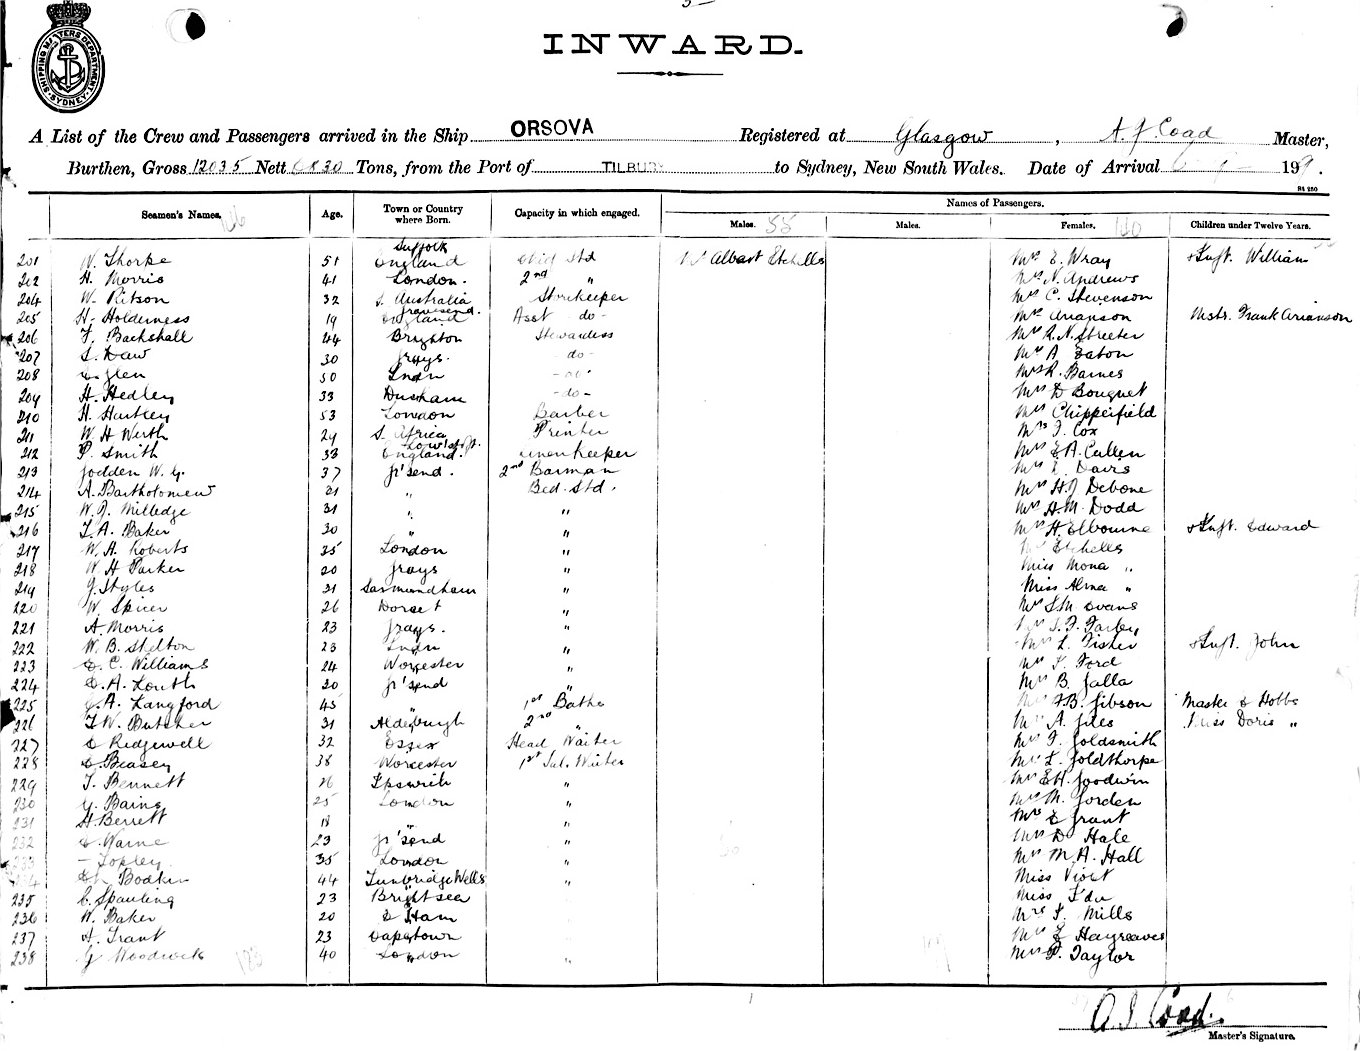 SHIPPING MASTERS DEPARTMENT SYDNEY
INWARD.
A List of the Crew and Passengers arrived in the Ship ORSOVA Registered at Glasgow, A. J. Coad Master,
Burthen, Gross 12035 Nett 6830 Tons, from the Port of TILBURY to Sydney, New South Wales. Date of Arrival 199.
Seamen's Names. Age. Town or Country where Born. Capacity in which engaged. Names of Passengers.
Males. 55 Males. Females. 140 Children under Twelve Years.
201 W. Thorpe 51 Suffolk England Chief Std Mr Albert Etchells Mrs E. Wray & Inft. William
202 H. Morris 41 London. 2nd " Mrs N. Andrews
204 W. Ritson 32 S. Australia Storekeeper Mrs C. Stevenson
205 H. Holderness 19 Gravesend. England Asst -do- Mrs Arianson Mstr. Frank Arianson
206 F. Backshall 44 Brighton Stewardess Mrs R. N. Streeter
207 S. Daw 30 Grays. -do- Mrs A Eaton
208 Glen 50 -do- Mrs R. Barnes
209 H. Hedley 33 Durham -do- Mrs D Bouquet
210 H. Hartley 53 London Barber Mrs Chipperfield
211 W. H Werth 29 S. Africa Printer Mrs J. Cox
212 P. Smith 38 Lowestoft. England. Linen Keeper Mrs E. A. Cullen
213 Godden W. G. 37 Gr'send. 2nd Barman Mrs E. Davis
214 A. Bartholomew 21 " Bed. Std. Mrs H. J Debone
215 W. J. Milledge 31 " " Mrs H. M. Dodd
216 T. A. Baker 30 " " Mrs H. Elbourne & Inft. Edward
217 W. A. Roberts 25 London " Mrs Etchells
218 W H Parker 20 Grays " Miss Mona "
219 G. Styles 31 Saxmundham " Miss Alma "
220 W. Spicer 26 Dorset " Mrs S. M. Evans
221 A. Morris 23 Grays. " Mrs S. F. Farley
222 W. B. Skelton 23 " Mrs L. Fisher & Inft. John
223 E. C. Williams 24 Worcester " Mrs S. Ford
224 E. A. Louth 20 Gr'send " Mrs B. Galla
225 A. Langford 45 " 1st Baths Mrs F. B. Gibson Master E Hobbs
226 F. W. Butcher 31 Aldeburgh 2nd " Mrs A. Giles Miss Doris "
227 E Ridgewell 32 Essex Head Waiter Mrs F. Goldsmith
228 E. Beasey 38 Worcester 1st Sal. Waiter Mrs L. Goldthorpe
229 T. Bennett 26 Ipswich " Mrs E. H. Goodwin
230 G. Bains 25 London " Mrs M. Gorden
231 H. Berrett 18 " " Mrs E Grant
232 E. Warne 23 Gr'send " Mrs D Hale
233 - Topley 35 London " Mrs M. A. Hall
234 Bodkin 44 Tunbridge Wells " Miss Violet
235 C. Spauling 23 Brightsea Miss Ida
236 W. Baker 20 E Ham Mrs S. Mills
237 A. Trant 23 Capetown Mrs E Haygreaves
238 G Woodwick 40 London " Mrs P. Taylor
A. J. Coad.
Master's Signature.